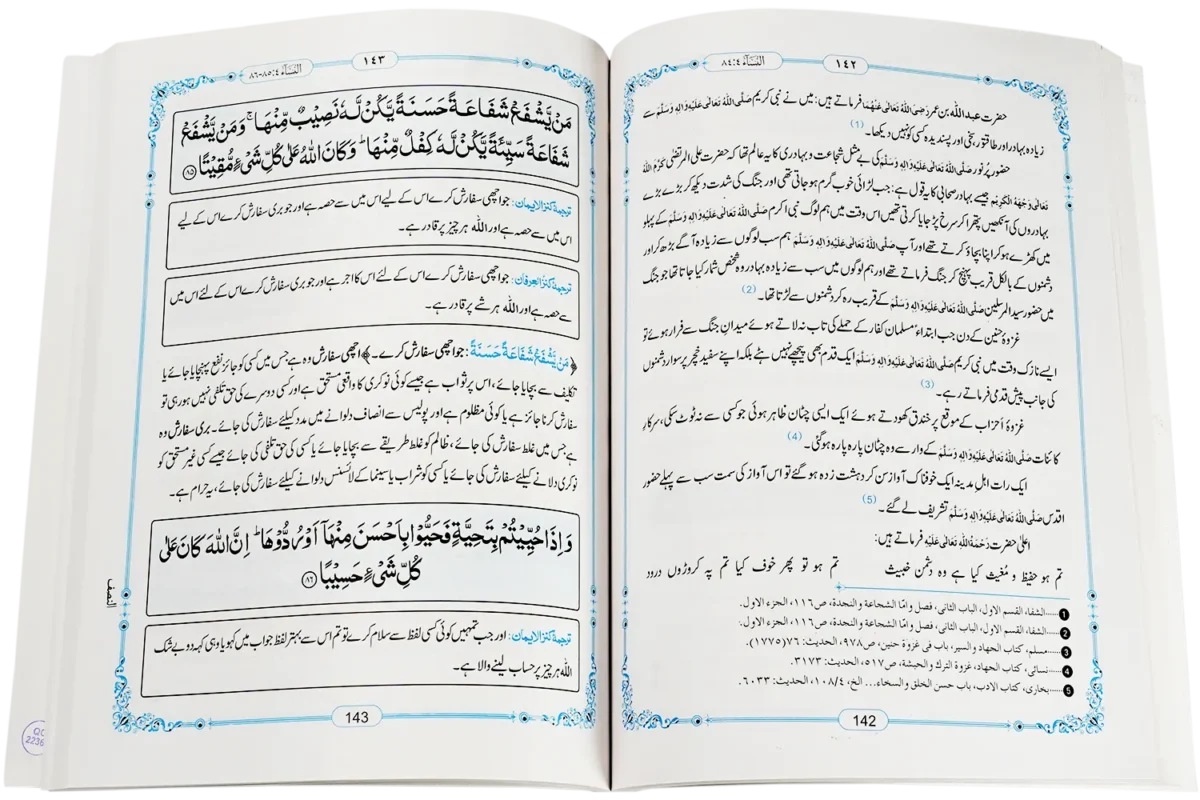 ١٤٢
اَلنِّسَآء ٤:٨٤
حضرت عبداللہ بن عمر رَضِیَ اللہُ تَعَالٰی عَنْہُمَا فرماتے ہیں: میں نے نبی کریم صَلَّی اللہُ تَعَالٰی عَلَیْہِ وَاٰلِہٖ وَسَلَّمَ سے
زیادہ بہادر اور طاقتور، سخی اور پسندیدہ کسی کو نہیں دیکھا۔ (1)
حضور پُر نور صَلَّی اللہُ تَعَالٰی عَلَیْہِ وَاٰلِہٖ وَسَلَّمَ کی بے مثل شجاعت و بہادری کا یہ عالم تھا کہ حضرت علی المرتضیٰ کَرَّمَ اللہُ
تَعَالٰی وَجْہَہُ الْکَرِیْم جیسے بہادر صحابی کا یہ قول ہے: جب لڑائی خوب گرم ہو جاتی تھی اور جنگ کی شدت دیکھ کر بڑے بڑے
بہادروں کی آنکھیں پتھرا کر سرخ پڑ جایا کرتی تھیں اس وقت میں ہم لوگ نبی اکرم صَلَّی اللہُ تَعَالٰی عَلَیْہِ وَاٰلِہٖ وَسَلَّمَ کے پہلو
میں کھڑے ہو کر اپنا بچاؤ کرتے تھے اور آپ صَلَّی اللہُ تَعَالٰی عَلَیْہِ وَاٰلِہٖ وَسَلَّمَ ہم سب لوگوں سے زیادہ آگے بڑھ کر اور
دشمنوں کے بالکل قریب پہنچ کر جنگ فرماتے تھے اور ہم لوگوں میں سب سے زیادہ بہادر وہ شخص شمار کیا جاتا تھا جو جنگ
میں حضور سید المرسلین صَلَّی اللہُ تَعَالٰی عَلَیْہِ وَاٰلِہٖ وَسَلَّمَ کے قریب رہ کر دشمنوں سے لڑتا تھا۔ (2)
غزوۂ حنین کے دن جب ابتداءً مسلمان کفار کے حملے کی تاب نہ لاتے ہوئے میدانِ جنگ سے فرار ہوئے تو
ایسے نازک وقت میں نبی کریم صَلَّی اللہُ تَعَالٰی عَلَیْہِ وَاٰلِہٖ وَسَلَّمَ ایک قدم بھی پیچھے نہیں ہٹے بلکہ اپنے سفید خچر پر سوار دشمنوں
کی جانب پیش قدمی فرماتے رہے۔ (3)
غزوۂ اَحزاب کے موقع پر خندق کھودتے ہوئے ایک ایسی چٹان ظاہر ہوئی جو کسی سے نہ ٹوٹ سکی، سرکارِ
کائنات صَلَّی اللہُ تَعَالٰی عَلَیْہِ وَاٰلِہٖ وَسَلَّمَ کے وار سے وہ چٹان پارہ پارہ ہو گئی۔ (4)
ایک رات اہلِ مدینہ ایک خوفناک آواز سن کر دہشت زدہ ہو گئے تو اس آواز کی سمت سب سے پہلے حضورِ
اقدس صَلَّی اللہُ تَعَالٰی عَلَیْہِ وَاٰلِہٖ وَسَلَّمَ تشریف لے گئے۔ (5)
اعلیٰ حضرت رَحْمَۃُ اللہِ تَعَالٰی عَلَیْہِ فرماتے ہیں:
تم ہو حفیظ و مُغیث کیا ہے وہ دشمن خبیث تم ہو تو پھر خوف کیا تم پہ کروڑوں درود
1......الشفاء القسم الاول، الباب الثانی، فصل وامّا الشجاعۃ والنجدۃ، ص۱۱۶، الجزء الاول.
2......الشفاء القسم الاول، الباب الثانی، فصل وامّا الشجاعۃ والنجدۃ، ص۱۱۶، الجزء الاول.
3......مسلم، کتاب الجھاد والسیر، باب فی غزوۃ حنین، ص۹۷۸، الحدیث: ۷۶(۱۷۷۵).
4......نسائی، کتاب الجھاد، غزوۃ الترک والحبشۃ، ص۵۱۷، الحدیث: ۳۱۷۳.
5......بخاری، کتاب الادب، باب حسن الخلق والسخاء... الخ، ۱۰۸/۴، الحدیث: ۶۰۳۳.
142
١٤٣
اَلنِّسَآء ٤:٨٥-٨٦
مَنْ یَّشْفَعْ شَفَاعَةً حَسَنَةً یَّكُنْ لَّهٗ نَصِیْبٌ مِّنْهَاۚ وَ مَنْ یَّشْفَعْ
شَفَاعَةً سَیِّئَةً یَّكُنْ لَّهٗ كِفْلٌ مِّنْهَاؕ وَ كَانَ اللّٰهُ عَلٰى كُلِّ شَیْءٍ مُّقِیْتًا ۸۵
ترجمۂ کنزالایمان: جو اچھی سفارش کرے اس کے لیے اس میں سے حصہ ہے اور جو بری سفارش کرے اس کے لیے
اس میں سے حصہ ہے اور اللہ ہر چیز پر قادر ہے۔
ترجمۂ کنزُالعِرفان: جو اچھی سفارش کرے اس کے لئے اس کا اجر ہے اور جو بری سفارش کرے اس کے لئے اس میں
سے حصہ ہے اور اللہ ہر شے پر قادر ہے۔
﴿مَنْ یَّشْفَعْ شَفَاعَةً حَسَنَةً: جو اچھی سفارش کرے۔﴾ اچھی سفارش وہ ہے جس میں کسی کو جائز نفع پہنچایا جائے یا
تکلیف سے بچایا جائے، اس پر ثواب ہے جیسے کوئی نوکری کا واقعی مستحق ہے اور کسی دوسرے کی حق تلفی نہیں ہو رہی تو
سفارش کرنا جائز ہے یا کوئی مظلوم ہے اور پولیس سے انصاف دلوانے میں مدد کیلئے سفارش کی جائے۔ بری سفارش وہ
ہے جس میں غلط سفارش کی جائے، ظالم کو غلط طریقے سے بچایا جائے یا کسی کی حق تلفی کی جائے جیسے کسی غیر مستحق کو
نوکری دلانے کیلئے سفارش کی جائے یا کسی کو شراب یا سینما کے لائسنس دلوانے کیلئے سفارش کی جائے، یہ حرام ہے۔
وَ اِذَا حُیِّیْتُمْ بِتَحِیَّةٍ فَحَیُّوْا بِاَحْسَنَ مِنْهَاۤ اَوْ رُدُّوْهَاؕ اِنَّ اللّٰهَ كَانَ عَلٰى
كُلِّ شَیْءٍ حَسِیْبًا ۸۶
النصف
ترجمۂ کنزالایمان: اور جب تمہیں کوئی کسی لفظ سے سلام کرے تو تم اس سے بہتر لفظ جواب میں کہو یا وہی کہہ دو بے شک
اللہ ہر چیز پر حساب لینے والا ہے۔
143